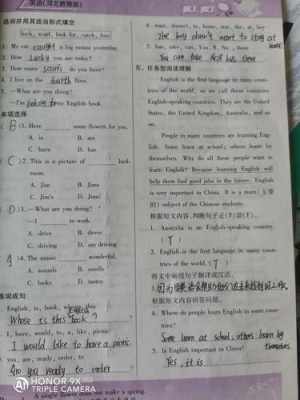 英语(河北教育版)
选词并用其适当形式填空
luck, want, look for, catch, four
1. My cat caught a big mouse yesterday.
2. How Lucky you are today?
3. How many do you have?
4. I live on the fourth floor.
5. —What are you doing?
—I'm looking for my English book.
单项选择
( B )1. Here some flowers for you.
A. is B. are
C. have D. has
( C )2. This is a picture of bedroom.
A. Jim B. Jims
C. Jim's D. Jims'
( D )3. —What are you doing?
—I to work.
A. drive B. drives
C. driving D. am driving
( A )4. The music wonderful.
A. sounds B. smells
C. looks D. tastes
连词成句
English, is, book, whose, this
Whose is this English book?
I, have, would, to, a, like, picnic
I would like to have a picnic.
you, are, ready, order, to
Are you ready to order
6. want, doesn't, to, home, stay, the, at, boy
The boy doesn't want to stay at
home
7. bus, take, can, You, No., there
You can take bus there
五、任务型阅读理解
English is the first language in many countries of the world, so we call these countries English-speaking countries. They are the United States, the United Kingdom, Australia, and so on.
People in many countries are learning English. Some learn at school; others learn by themselves. Why do all these people want to learn English? Because learning English will help them find good jobs in the future. English is very important in China. It is a must (必要的) subject of the Chinese students.
根据短文内容,判断句子正(T)误(F)。
1. Australia is an English-speaking country.
( T )
2. English is the first language in many countries of the world. ( T )
将文中画线句子翻译成汉语。
根据短文内容回答问题。
4. Where do people learn English in many countries?
Some learn at school, others learn by
themselves.
5. Is English important in China?
Yes, it is
A single flower does not make a spring.
HONOR 9X
TRIPLE CAMERA